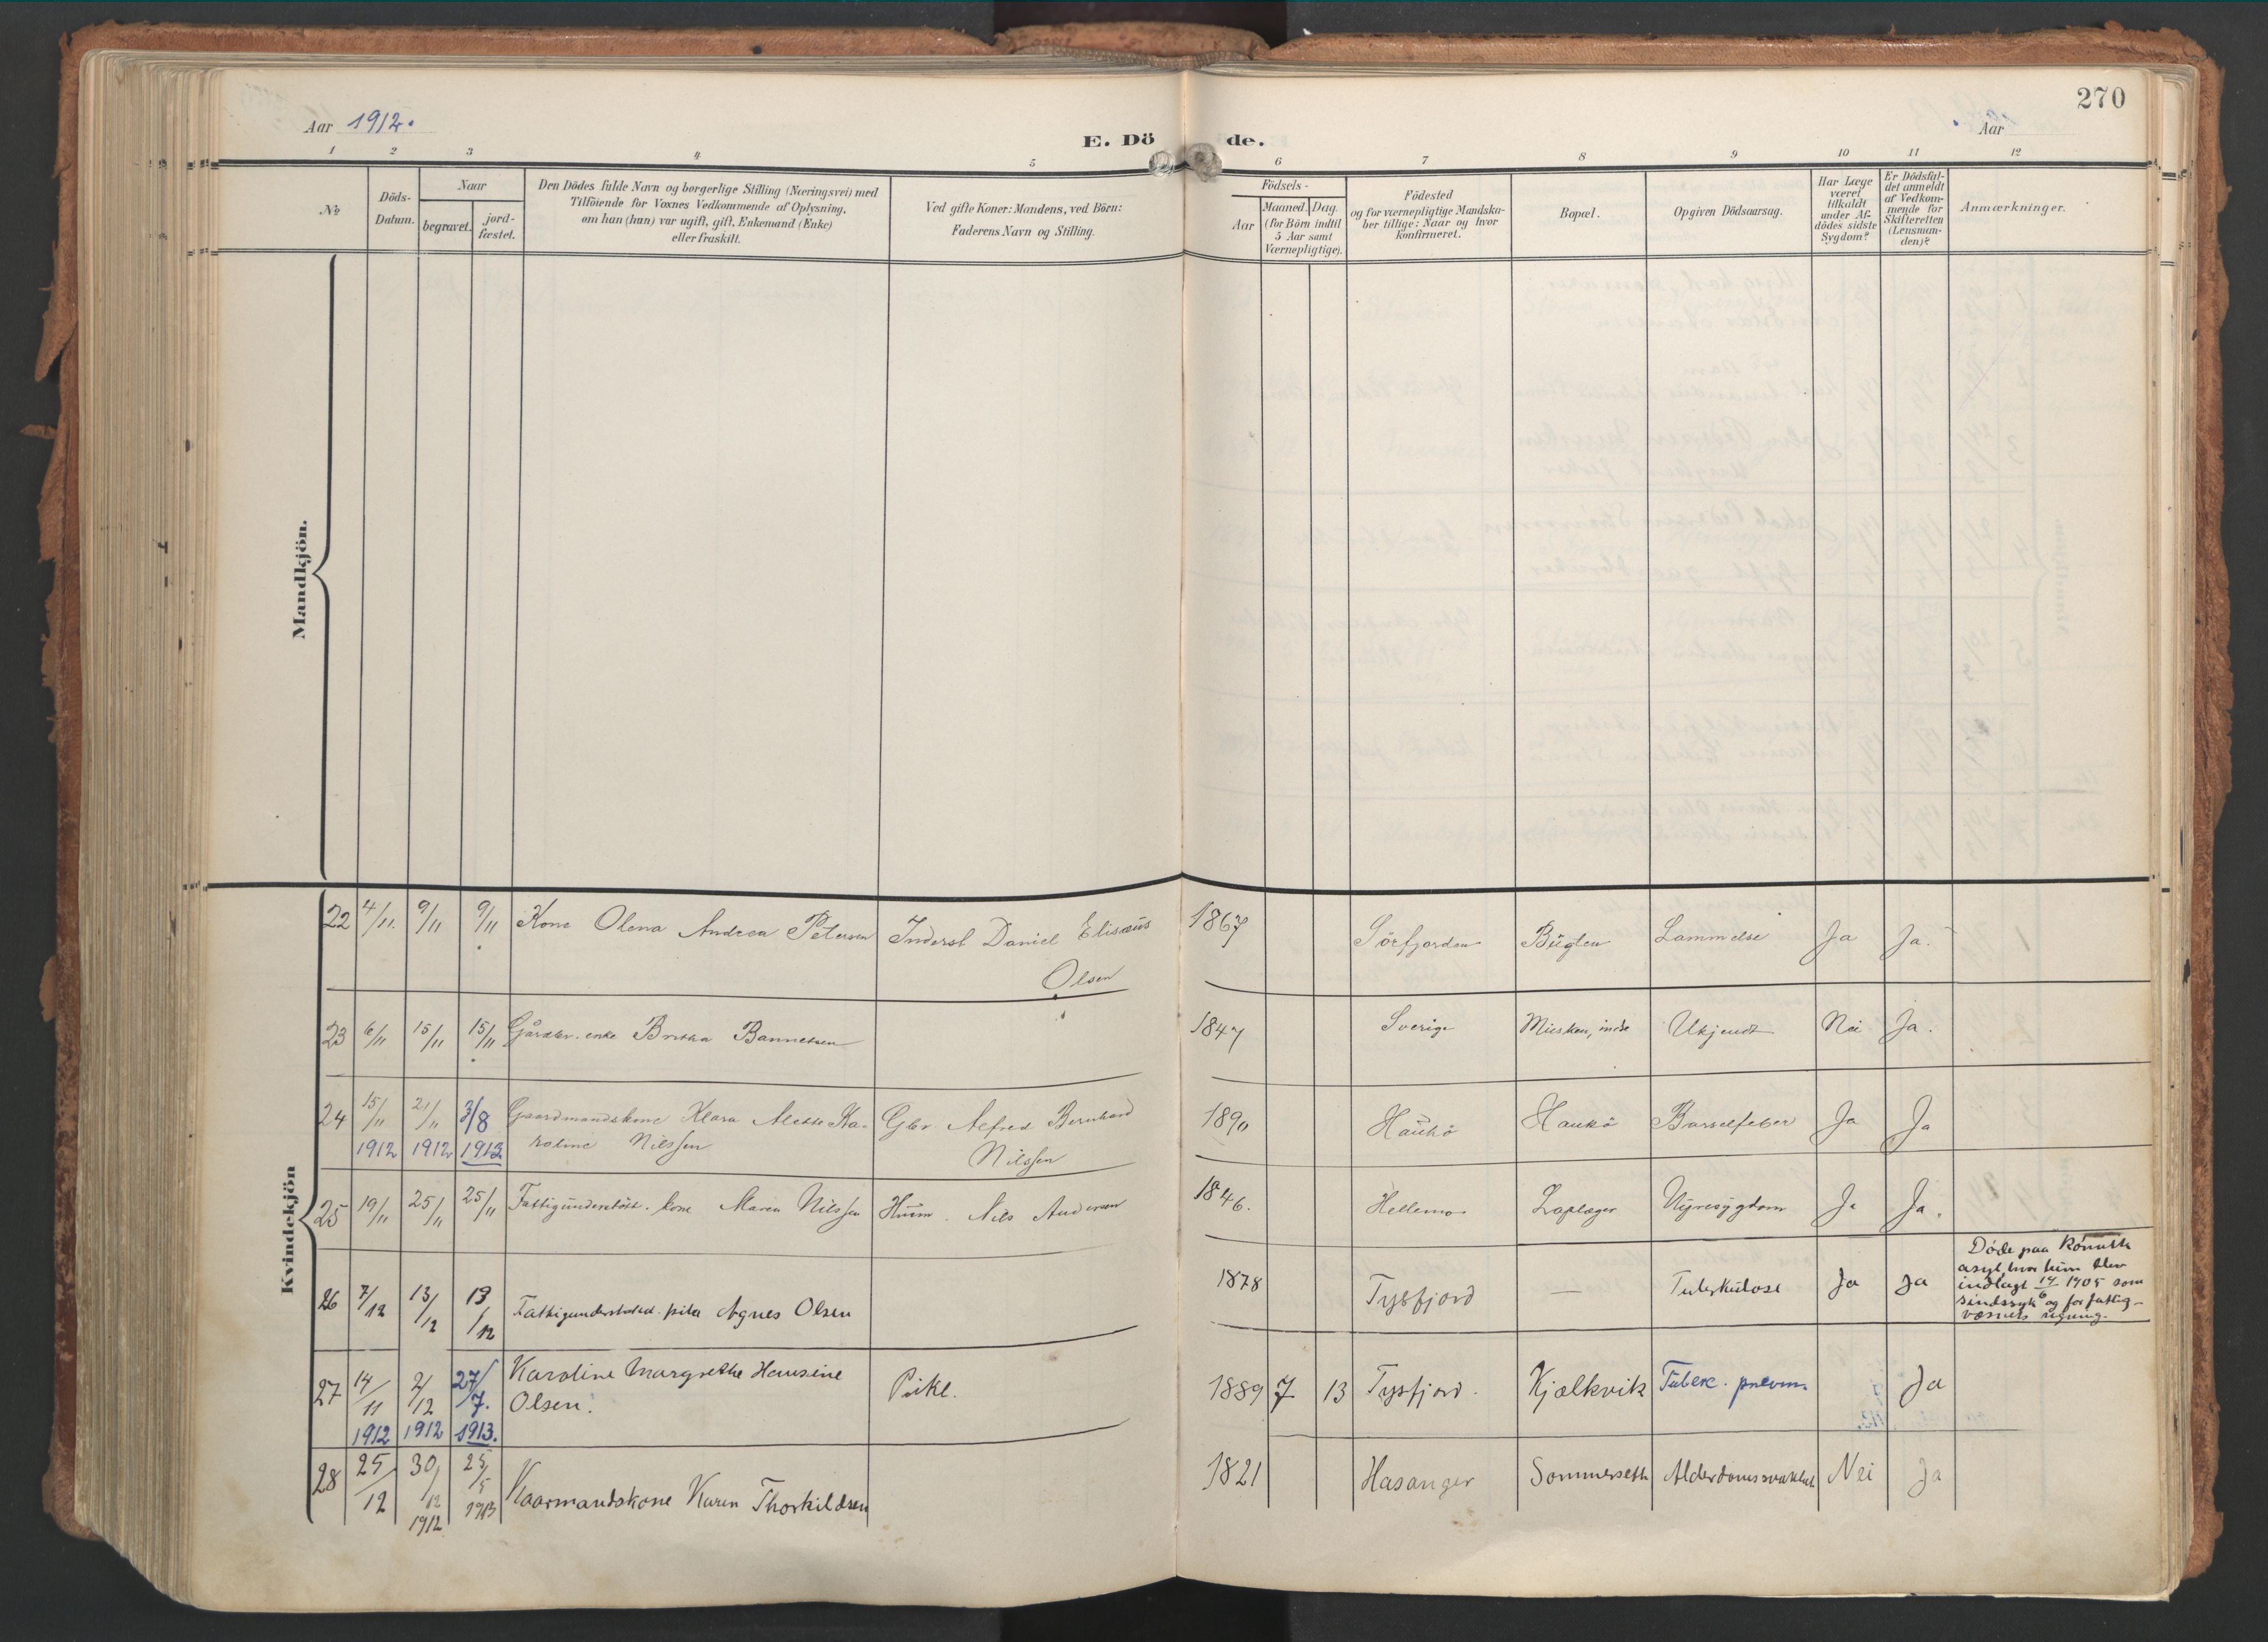 270
Aar 1912.
E. Dö de.
Aar
1 2 3 4 5 6 7 8 9 10 11 12
№
Döds-
Datum.
Naar
begravet.
jord-
fæstet.
Den Dödes fulde Navn og borgerlige Stilling (Næringsvei) med
Tilföiende for Voxnes Vedkommende af Oplysning,
om han (hun) var ugift, gift, Enkemand (Enke)
eller fraskilt.
Ved gifte Koner: Mandens, ved Börn:
Faderens Navn og Stilling.
Födsels-
Aar
Maaned. Dag.
(for Börn indtil
5 Aar samt
Værnepligtige).
Födested
og for værnepligtige Mandska-
ber tillige: Naar og hvor
konfirmeret.
Bopæl.
Opgiven Dödsaarsag.
Har Læge
været
tilkaldt
under Af-
dödes sidste
Sygdom?
Er Dödsfal-
det anmeldt
af Vedkom-
mende for
Skifteretten
(Lensman-
den)?
Anmærkninger.
Mandkjön.
Kvindekjön
22 4/11. 9/11 9/11 Kone Olena Andrea Petersen Inderst Daniel Elisæus 1867 Sörfjorden Bugten Lammelse Ja Ja.
Olsen
23 6/11 15/11 15/11 Gårdbr. enke Britha Bannetsen 1847 Sverige Musken, indre Ukjendt Nei Ja.
24 15/11 21/11 3/8 Gaardmandskone Klara Alette Ka- Gbr. Alfred Bernhard 1890 Haukö Haukö Barselfeber Ja Ja
1912 1912 1913 roline Nilssen Nilssen
25 19/11 25/11 25/11 Fattigunderstött. kone Maren Nilssen Husm. Nils Andersen 1846. Hellemo Laplæger Nyresygdom Ja Ja.
26 7/12 13/12 13/12 Fattigunderstöttet pike Agnes Olsen 1878 Tysfjord — Tuberkulose Ja Ja
Döde paa Rönvik
asyl, hvor hun blev
indlagt 14/6 1905 som
sindssyk og for fattig-
væsnets regning.
27 14/11 2/12 27/7. Karoline Margrethe Hansine Pike. 1889 7 13 Tysfjord. Kjælkvik Tuberk. pneum. Ja
1912 1912 1913. Olsen.
28 25/12 30/12 25/5 Kaarmandskone Karen Thorkildsen 1821 Hasanger Sommerseth Alderdomssvakhet Nei Ja
1912 1913